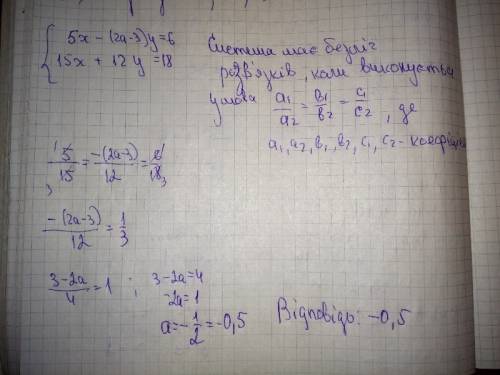 { 5x - (2a-3)y = 6
15x + 12y = 18
Система має безліч
розв'язків, коли виконується
умова a₁/a₂ = b₁/b₂ = c₁/c₂, де
a₁, a₂, b₁, b₂, c₁, c₂ -
5/15 = -(2a-3)/12 = 6/18
-(2a-3)/12 = 1/3
3-2a/4 = 1 ; 3-2a=4
-2a=1
a = -1/2 = -0,5
Відповідь: -0,5